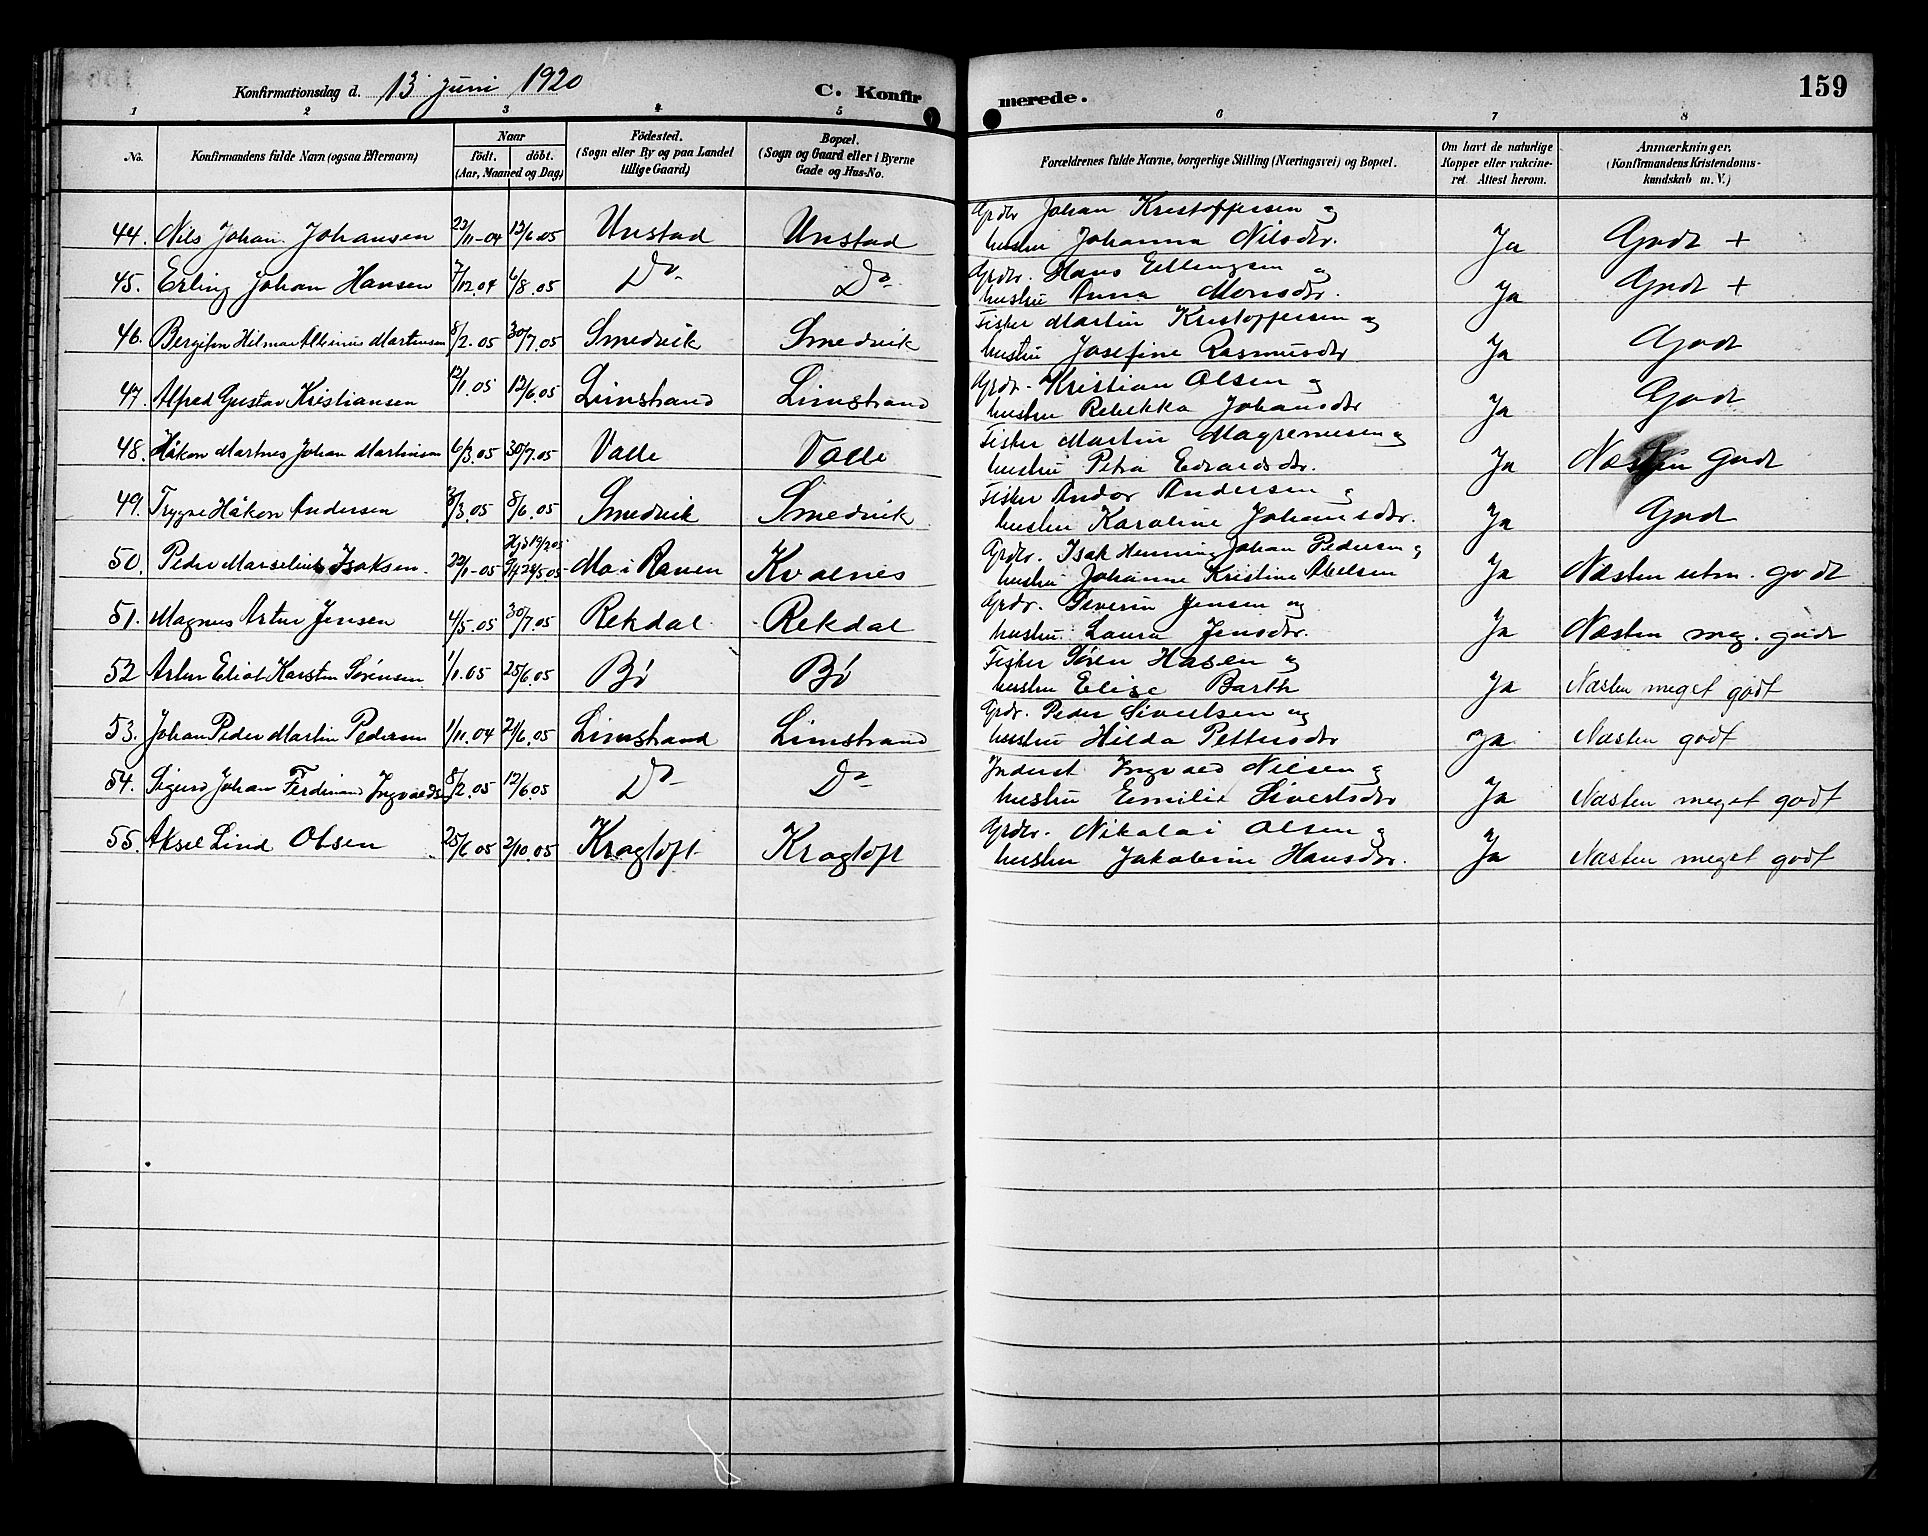 Konfirmationsdag d. 13 juni 1920
C. Konfirmerede.
159
1 2 3 4 5 6 7 8
No.
Konfirmandens fulde Navn (ogsaa Efternavn)
Naar
födt. döbt.
(Aar, Maaned og Dag)
Födested.
(Sogn eller By og paa Landet
tillige Gaard)
Bopæl.
(Sogn og Gaard eller i Byerne
Gade og Hus-No.
Forældrenes fulde Navne, borgerlige Stilling (Næringsvei) og Bopæl.
Om havt de naturlige
Kopper eller vakcine-
ret. Attest herom.
Anmærkninger.
(Konfirmandens Kristendoms-
kundskab m. V.)
44. Nils Johan Johansen 23/11-04 12/6.05 Unstad Unstad Grdbr Johan Kristoffersen og
hustru Johanna Nilsdtr. Ja Godt +
45. Erling Johan Hansen 7/12.04 6/8.05 Do Do Grdbr. Hans Ellingsen og
hustru Anna Monsdtr. Ja Godt +
46. Hilmar Martinsen 8/2.05 30/7.05 Smedvik Smedvik Fisker Martin Kristoffersen og
hustru Josefine Rasmusdtr Ja Godt
47. Alfred Gustav Kristiansen 12/1.05 12/6.05 Limstrand Limstrand Grdr. Kristian Olsen og
hustru Rebekka Johansdtr Ja Godt
48. Håkon Martnes Johan Martinsen 6/3.05 30/7.05 Valle Valle Fisker Martin Magnussen og
hustru Petra Edvardsdtr. Ja Næsten godt
49. Trygve Håkon Andersen /3.05 8/6.05 Smedvik Smedvik Fisker Andor Andersen og
hustru Karoline Johansdtr. Ja Godt
50. Peder Marselius Isaksen 22/1-05 Hjd 19/2 05
24/5 05 Mo i Ranen Kvalnes Grdbr. Isak Henning Johan Pedersen og
hustru Johanne Kristine Abelsen Ja Næsten utm. godt
51. Magnus Artur Jensen 4/5.05 30/7.05 Rekdal Rekdal Grdr. Severin Jensen og
hustru Laura Jensdtr. Ja Næsten meg. godt
52 Artur Eliot Karsten Sørensen 1/1.05 25/6.05 Bø Bø Fisker Søren Hasen og
hustru Elise Barth Ja Næsten meget godt
53. Johan Peder Martin Pedersen 1/11.04 24/6.05 Limstrand Limstrand Grdr. Peder Sivertsen og
hustru Hilda Pettersdtr Ja Næsten godt
54. Sigurd Johan Ferdinand Ingvaldsen 8/2.05 12/6.05 Do Do Inderst Ingvald Nilsen og
hustru Emilie Sivertsdtr Ja Næsten meget godt
55. Aksel Lind Olsen 25/6 05 2/10.05 Kragtoft Kragtoft Grdbr. Nikolai Olsen og
hustru Jakobine Hansdtr. Ja Næsten meget godt